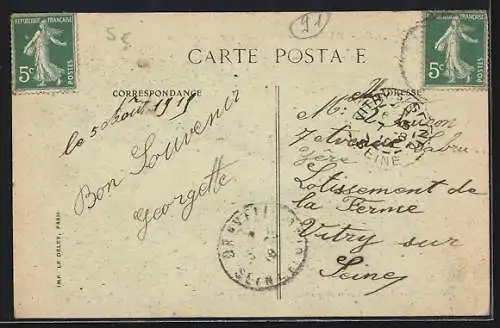 SE
91
REPUBLIQUE FRANÇAISE
5c POSTES
REPUBLIQUE FRANÇAISE
5c POSTES
CARTE POSTALE
CORRESPONDANCE
ADRESSE
le 5 Août 1919
Bon Souvenir
Georgette
M:
7 Avenue
Lotissement de
la Ferme
Vitry sur
Seine
VITRY-S-SEINE
SEINE
DRAVEIL
SEINE
IMP. LE DELEY, PARIS